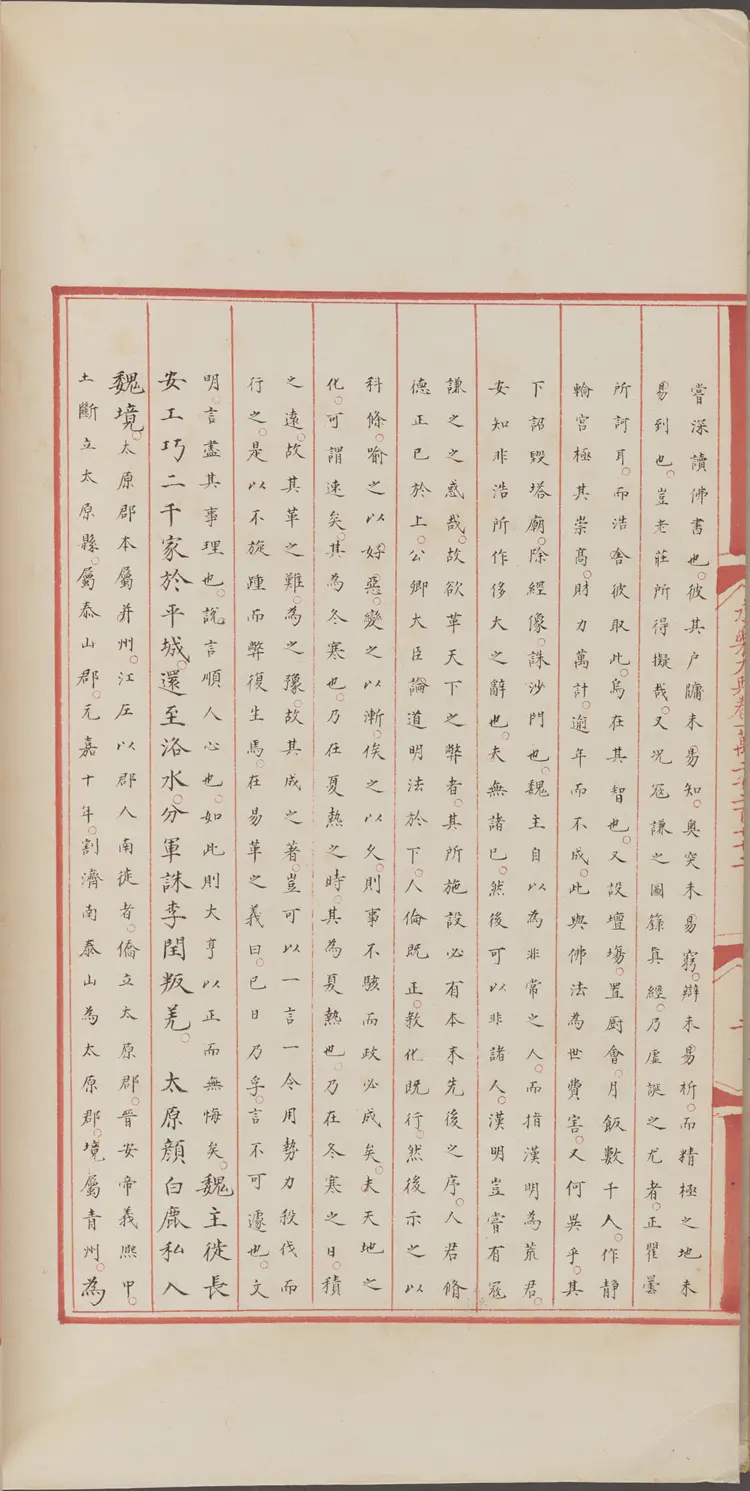 嘗深讀佛書也。彼其户牖未易知。奥突未易窮。辦未易析。而精極之地未
易到也。豈老莊所得擬哉。又况冦謙之圖籙真經。乃虚誕之尤者。正瞿曇
所訶耳。而浩舍彼取此。烏在其智也。又設壇場。置厨會。月飯數千人。作静
輪宫極其崇高。財力萬計。逾年而不成。此與佛法為世費害。又何異乎。其
下詔毁塔廟。除經像。誅沙門也。魏主自以為非常之人。而指漢明為荒君。
安知非浩所作侈大之辭也。夫無諸已。然後可以非諸人。漢明豈嘗有冦
謙之之惑哉。故欲革天下之弊者。其所施設必有本末先後之序。人君脩
德正已於上。公卿大臣論道明法於下。人倫既正。教化既行。然後示之以
科條。喻之以好惡。變之以漸。俟之以久。則事不駭而政必成矣。夫天地之
化。可謂速矣。其為冬寒也。乃在夏熱之時。其為夏熱也。乃在冬寒之日。積
之遠。故其革之難。為之豫。故其成之著。豈可以一言一令用勢力殺伐而
行之。是以不旋踵而弊復生焉。在易革之義曰。已日乃孚。言不可遽也。文
明。言盡其事理也。説言順人心也。如此則大亨以正而無悔矣。魏主徙長
安工巧二千家於平城。還至洛水。分軍誅李閏叛羌。 太原顔白鹿私入
魏境。太原郡本屬并州。江左以郡人南徙者。僑立太原郡。晉安帝義熙中。
土斷立太原縣。屬泰山郡。元嘉十年。割濟南泰山為太原郡。境屬青州。為